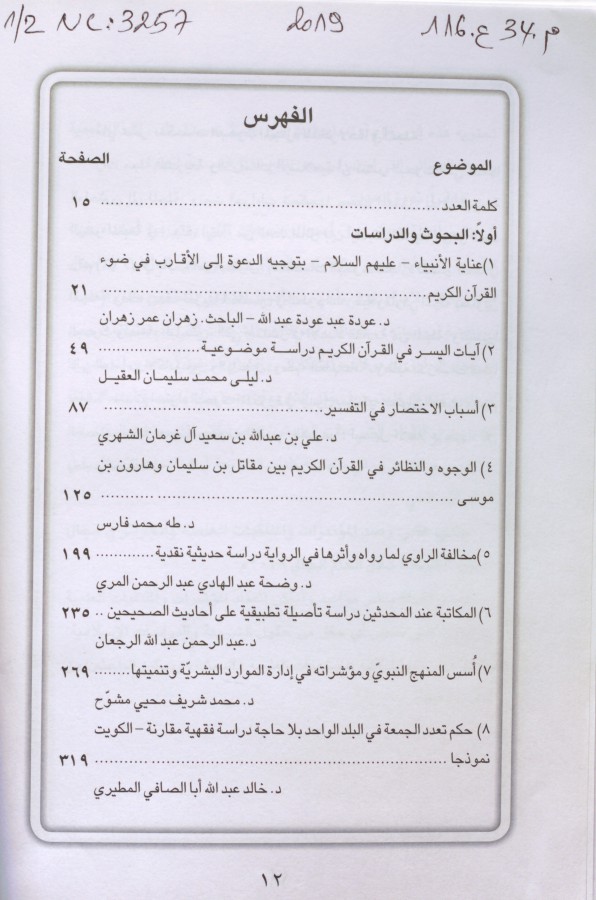 1/2 NC: 3257 2019 م.34 ع.116
الفهرس
الموضوع الصفحة
كلمة العدد ١٥
أولاً: البحوث والدراسات
١) عناية الأنبياء – عليهم السلام – بتوجيه الدعوة إلى الأقارب في ضوء
القرآن الكريم ٢١
د. عودة عبد عودة عبد الله – الباحث. زهران عمر زهران
٢) آيات البسر في القرآن الكريم دراسة موضوعية ٤٩
د. ليلى محمد سليمان العقيل
٣) أسباب الاختصار في التفسير ٨٧
د. علي بن عبدالله بن سعيد آل غرمان الشهري
٤) الوجوه والنظائر في القرآن الكريم بين مقاتل بن سليمان وهارون بن
موسى ١٢٥
د. طه محمد فارس
٥) مخالفة الراوي لما رواه وأثرها في الرواية دراسة حديثية نقدية ١٩٩
د. وضحة عبد الهادي عبد الرحمن المري
٦) المكاتبة عند المحدثين دراسة تأصيلة تطبيقية على أحاديث الصحيحين .. ٢٣٥
د.عبد الرحمن عبد الله الرجعان
٧) أُسس المنهج النبويّ ومؤشراته في إدارة الموارد البشريّة وتنميتها ٢٦٩
د. محمد شريف محيي مشوّح
٨) حكم تعدد الجمعة في البلد الواحد بلا حاجة دراسة فقهية مقارنة – الكويت
نموذجا ٣١٩
د. خالد عبد الله أبا الصافي المطيري
١٢